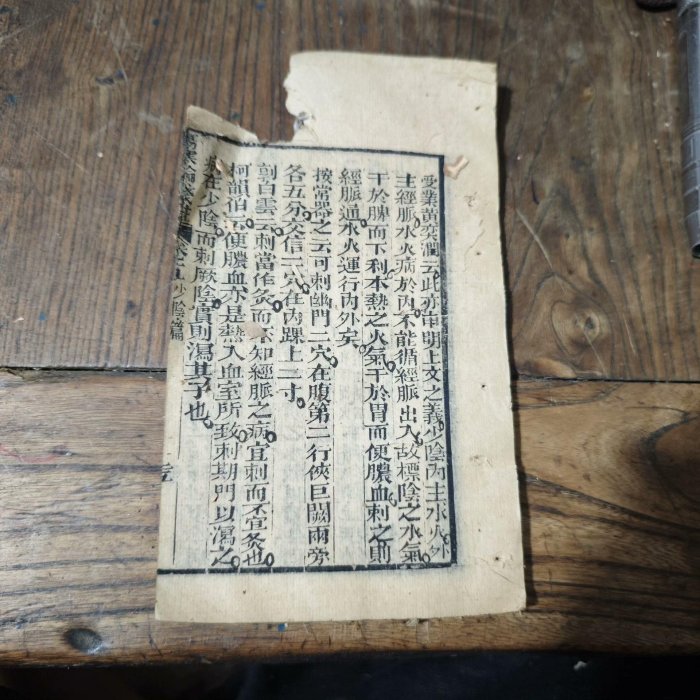 受業黃奕潤云此亦申明上文之義少陰內主水火外
主經脈水火病於內不能循經脈出入故標陰之水氣
干於脾而下利本熱之火氣干於胃而便膿血刺之則
經脈通水火運行內外矣
按常器之云可刺幽門二穴在腹第二行俠巨闕兩旁
各五分交信二穴在內踝上二寸
郭白雲云刺當作灸而不知經脈之病宜刺而不宜灸也
柯韻伯云便膿血亦是熱入血室所致刺期門以瀉之
病在少陰而刺厥陰實則瀉其子也
傷寒論淺註 卷五 少陰篇